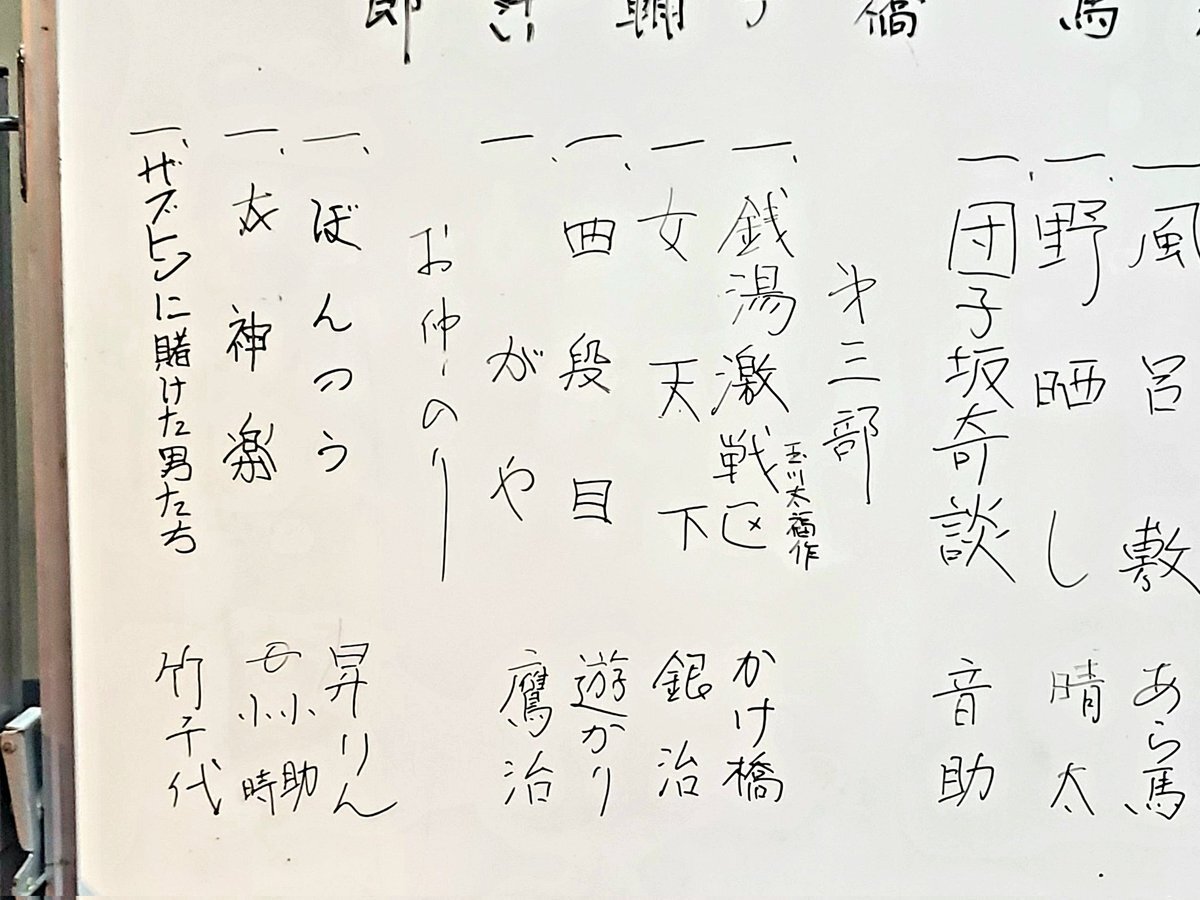 一、風呂敷 あら馬
一、野晒し 晴太
一、団子坂奇談 音助
第三部
玉川太福作
一、銭湯激戦区 かけ橋
一 女天下 銀治
一、四段目 遊かり
一、がや 鷹治
お仲のり
一、ぼんのう 昇りん
一、太神楽 小助 小時
一、ザズヒンに賭けた男たち 竹千代